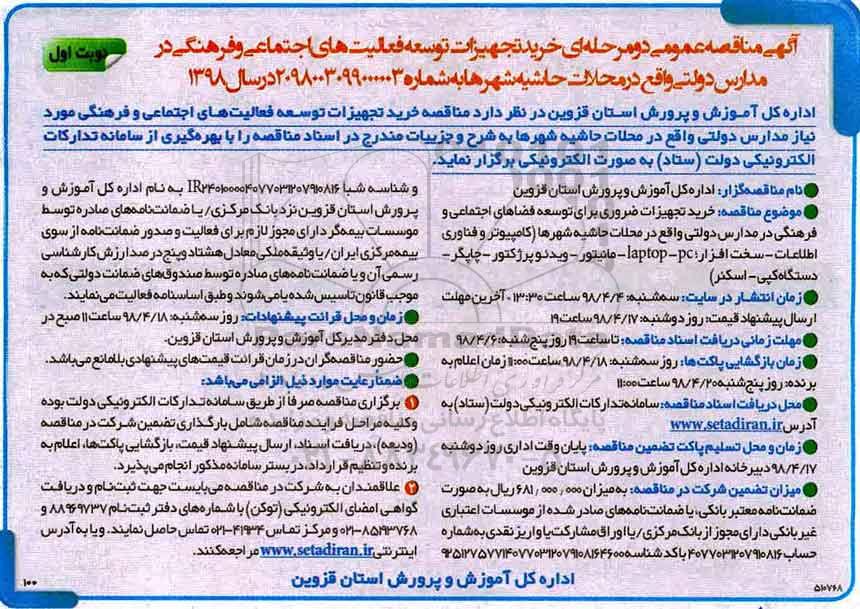 آگهی مناقصه عمومی دو مرحله‌ای خرید تجهیزات توسعه فعالیت‌های اجتماعی و فرهنگی در
مدارس دولتی واقع در محلات حاشیه شهرها به شماره ۲۰۹۸۰۰۳۰۹۹۰۰۰۰۰۳ در سال ۱۳۹۸
نوبت اول
اداره کل آموزش و پرورش استان قزوین در نظر دارد مناقصه خرید تجهیزات توسعه فعالیت‌های اجتماعی و فرهنگی مورد
نیاز مدارس دولتی واقع در محلات حاشیه شهرها به شرح و جزییات مندرج در اسناد مناقصه را با بهره‌گیری از سامانه تدارکات
الکترونیکی دولت (ستاد) به صورت الکترونیکی برگزار نماید.
نام مناقصه‌گزار: اداره کل آموزش و پرورش استان قزوین
موضوع مناقصه: خرید تجهیزات ضروری برای توسعه فضاهای اجتماعی و
فرهنگی در مدارس دولتی واقع در محلات حاشیه شهرها (کامپیوتر و فناوری
اطلاعات - سخت افزار؛ laptop-pc - مانیتور - ویدئو پرژکتور - چاپگر -
دستگاه کپی - اسکنر)
زمان انتشار در سایت: سه‌شنبه: ۹۸/۴/۴ ساعت ۱۳:۳۰ - آخرین مهلت
ارسال پیشنهاد قیمت: روز دوشنبه ۹۸/۴/۱۷ ساعت ۱۹
مهلت زمانی دریافت اسناد مناقصه: تا ساعت ۱۹ روز پنج‌شنبه: ۹۸/۴/۶
زمان بازگشایی پاکت‌ها: روز سه‌شنبه: ۹۸/۴/۱۸ ساعت ۱۱:۰۰ زمان اعلام به
برنده: روز پنج‌شنبه ۹۸/۴/۲۰ ساعت ۱۱:۰۰
محل دریافت اسناد مناقصه: سامانه تدارکات الکترونیکی دولت (ستاد) به
آدرس www.setadiran.ir
زمان و محل تسلیم پاکت تضمین مناقصه: پایان وقت اداری روز دوشنبه
۹۸/۴/۱۷ دبیرخانه اداره کل آموزش و پرورش استان قزوین
میزان تضمین شرکت در مناقصه: به میزان ۶۸۱/۰۰۰/۰۰۰ ریال به صورت
ضمانت‌نامه معتبر بانکی، یا ضمانت‌نامه‌های صادر شده از موسسات اعتباری
غیر بانکی دارای مجوز از بانک مرکزی / یا اوراق مشارکت یا واریز نقدی به شماره
حساب ۴۰۷۷۰۳۱۲۰۷۹۱۰۸۱۶ با کد شناسه ۹۲۵۱۲۷۵۷۷۱۴۰۷۷۰۳۱۲۰۷۹۱۰۸۱۶۴۶۰۰
و شناسه شبا IR۲۴۰۱۰۰۰۰۴۰۷۷۰۳۱۲۰۷۹۱۰۸۱۶ به نام اداره کل آموزش و
پرورش استان قزوین نزد بانک مرکزی / یا ضمانت‌نامه‌های صادره توسط
موسسات بیمه‌گر دارای مجوز لازم برای فعالیت و صدور ضمانت‌نامه از سوی
بیمه مرکزی ایران / یا وثیقه ملکی معادل هشتاد و پنج درصد ارزش کارشناسی
رسمی آن و یا ضمانت نامه‌های صادره توسط صندوق‌های ضمانت دولتی که به
موجب قانون تاسیس شده یا می‌شوند و طبق اساسنامه فعالیت می‌نمایند.
زمان و محل قرائت پیشنهادات: روز سه‌شنبه: ۹۸/۴/۱۸ ساعت ۱۱ صبح در
محل دفتر مدیرکل آموزش و پرورش استان قزوین.
حضور مناقصه‌گران در زمان قرائت قیمت‌های پیشنهادی بلامانع می‌باشد.
ضمنا رعایت موارد ذیل الزامی می‌باشد:
۱ برگزاری مناقصه صرفاً از طریق سامانه تدارکات الکترونیکی دولت بوده
و کلیه مراحل فرایند مناقصه شامل بارگذاری تضمین شرکت در مناقصه
(ودیعه)، دریافت اسناد، ارسال پیشنهاد قیمت، بازگشایی پاکت‌ها، اعلام به
برنده و تنظیم قرارداد، در بستر سامانه مذکور انجام می‌پذیرد.
۲ علاقمندان به شرکت در مناقصه می‌بایست جهت ثبت‌نام و دریافت
گواهی امضای الکترونیکی (توکن) با شماره‌های دفتر ثبت‌نام ۸۸۹۶۹۷۳۷ و
۰۲۱-۸۵۱۹۳۷۶۸ و مرکز تماس ۰۲۱-۴۱۹۳۴ تماس حاصل نمایند. و یا به آدرس
اینترنتی www.setadiran.ir مراجعه کنند.
اداره کل آموزش و پرورش استان قزوین
۱۰۰
۵۱۰۷۶۸